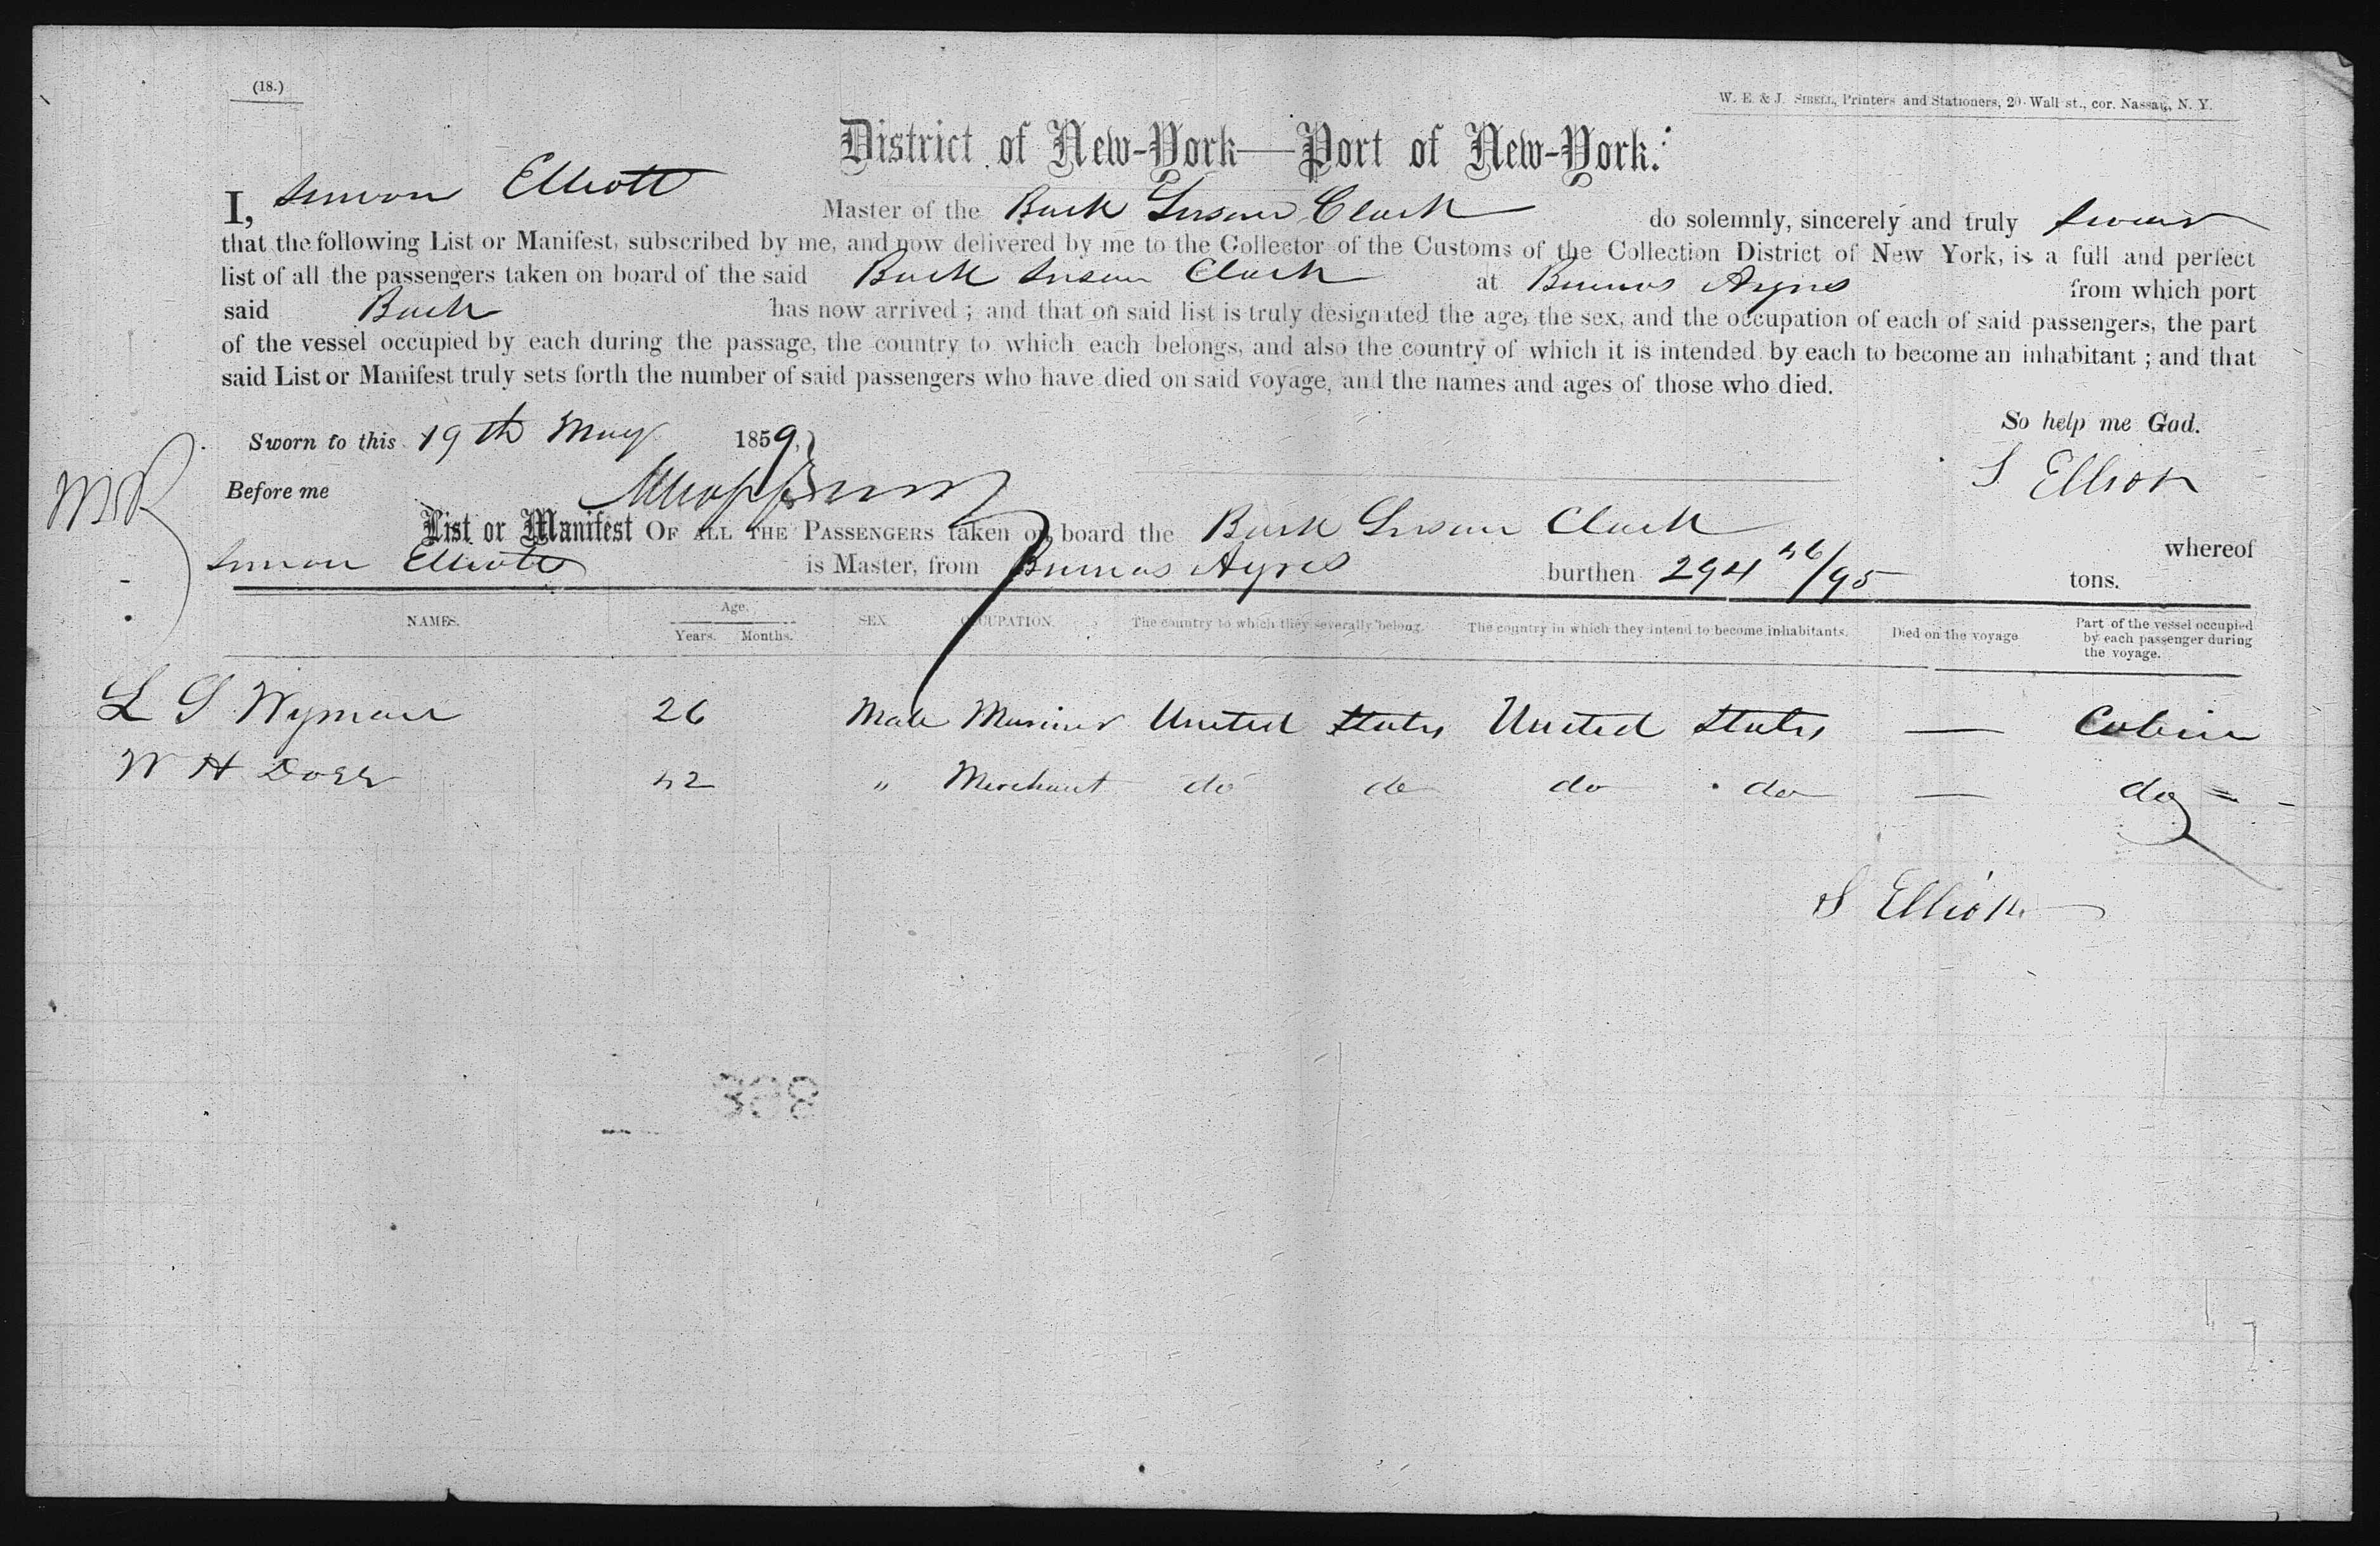 (18.)
W. E. & J. SIBELL, Printers and Stationers, 20 Wall st., cor. Nassau, N. Y.
District of New-York—Port of New-York.
I, Simon Elliott Master of the Bark Susan Clark do solemnly, sincerely and truly swear
that the following List or Manifest, subscribed by me, and now delivered by me to the Collector of the Customs of the Collection District of New York, is a full and perfect
list of all the passengers taken on board of the said Bark Susan Clark at Buenos Ayres from which port
said Bark has now arrived ; and that on said list is truly designated the age, the sex, and the occupation of each of said passengers, the part
of the vessel occupied by each during the passage, the country to which each belongs, and also the country of which it is intended by each to become an inhabitant ; and that
said List or Manifest truly sets forth the number of said passengers who have died on said voyage, and the names and ages of those who died.
So help me God.
Sworn to this 19th May 1859,
S Elliott
Before me
List or Manifest OF ALL THE PASSENGERS taken on board the Bark Susan Clark whereof
Simon Elliott is Master, from Buenos Ayres burthen 294 46/95 tons.
NAMES. Age. Years. Months. SEX. OCCUPATION. The country to which they severally belong. The country in which they intend to become inhabitants. Died on the voyage Part of the vessel occupied by each passenger during the voyage.
L S Wyman 26 Male Mariner United States United States — Cabin
W H Dorr 42 " Merchant do do do do — do
S Elliott